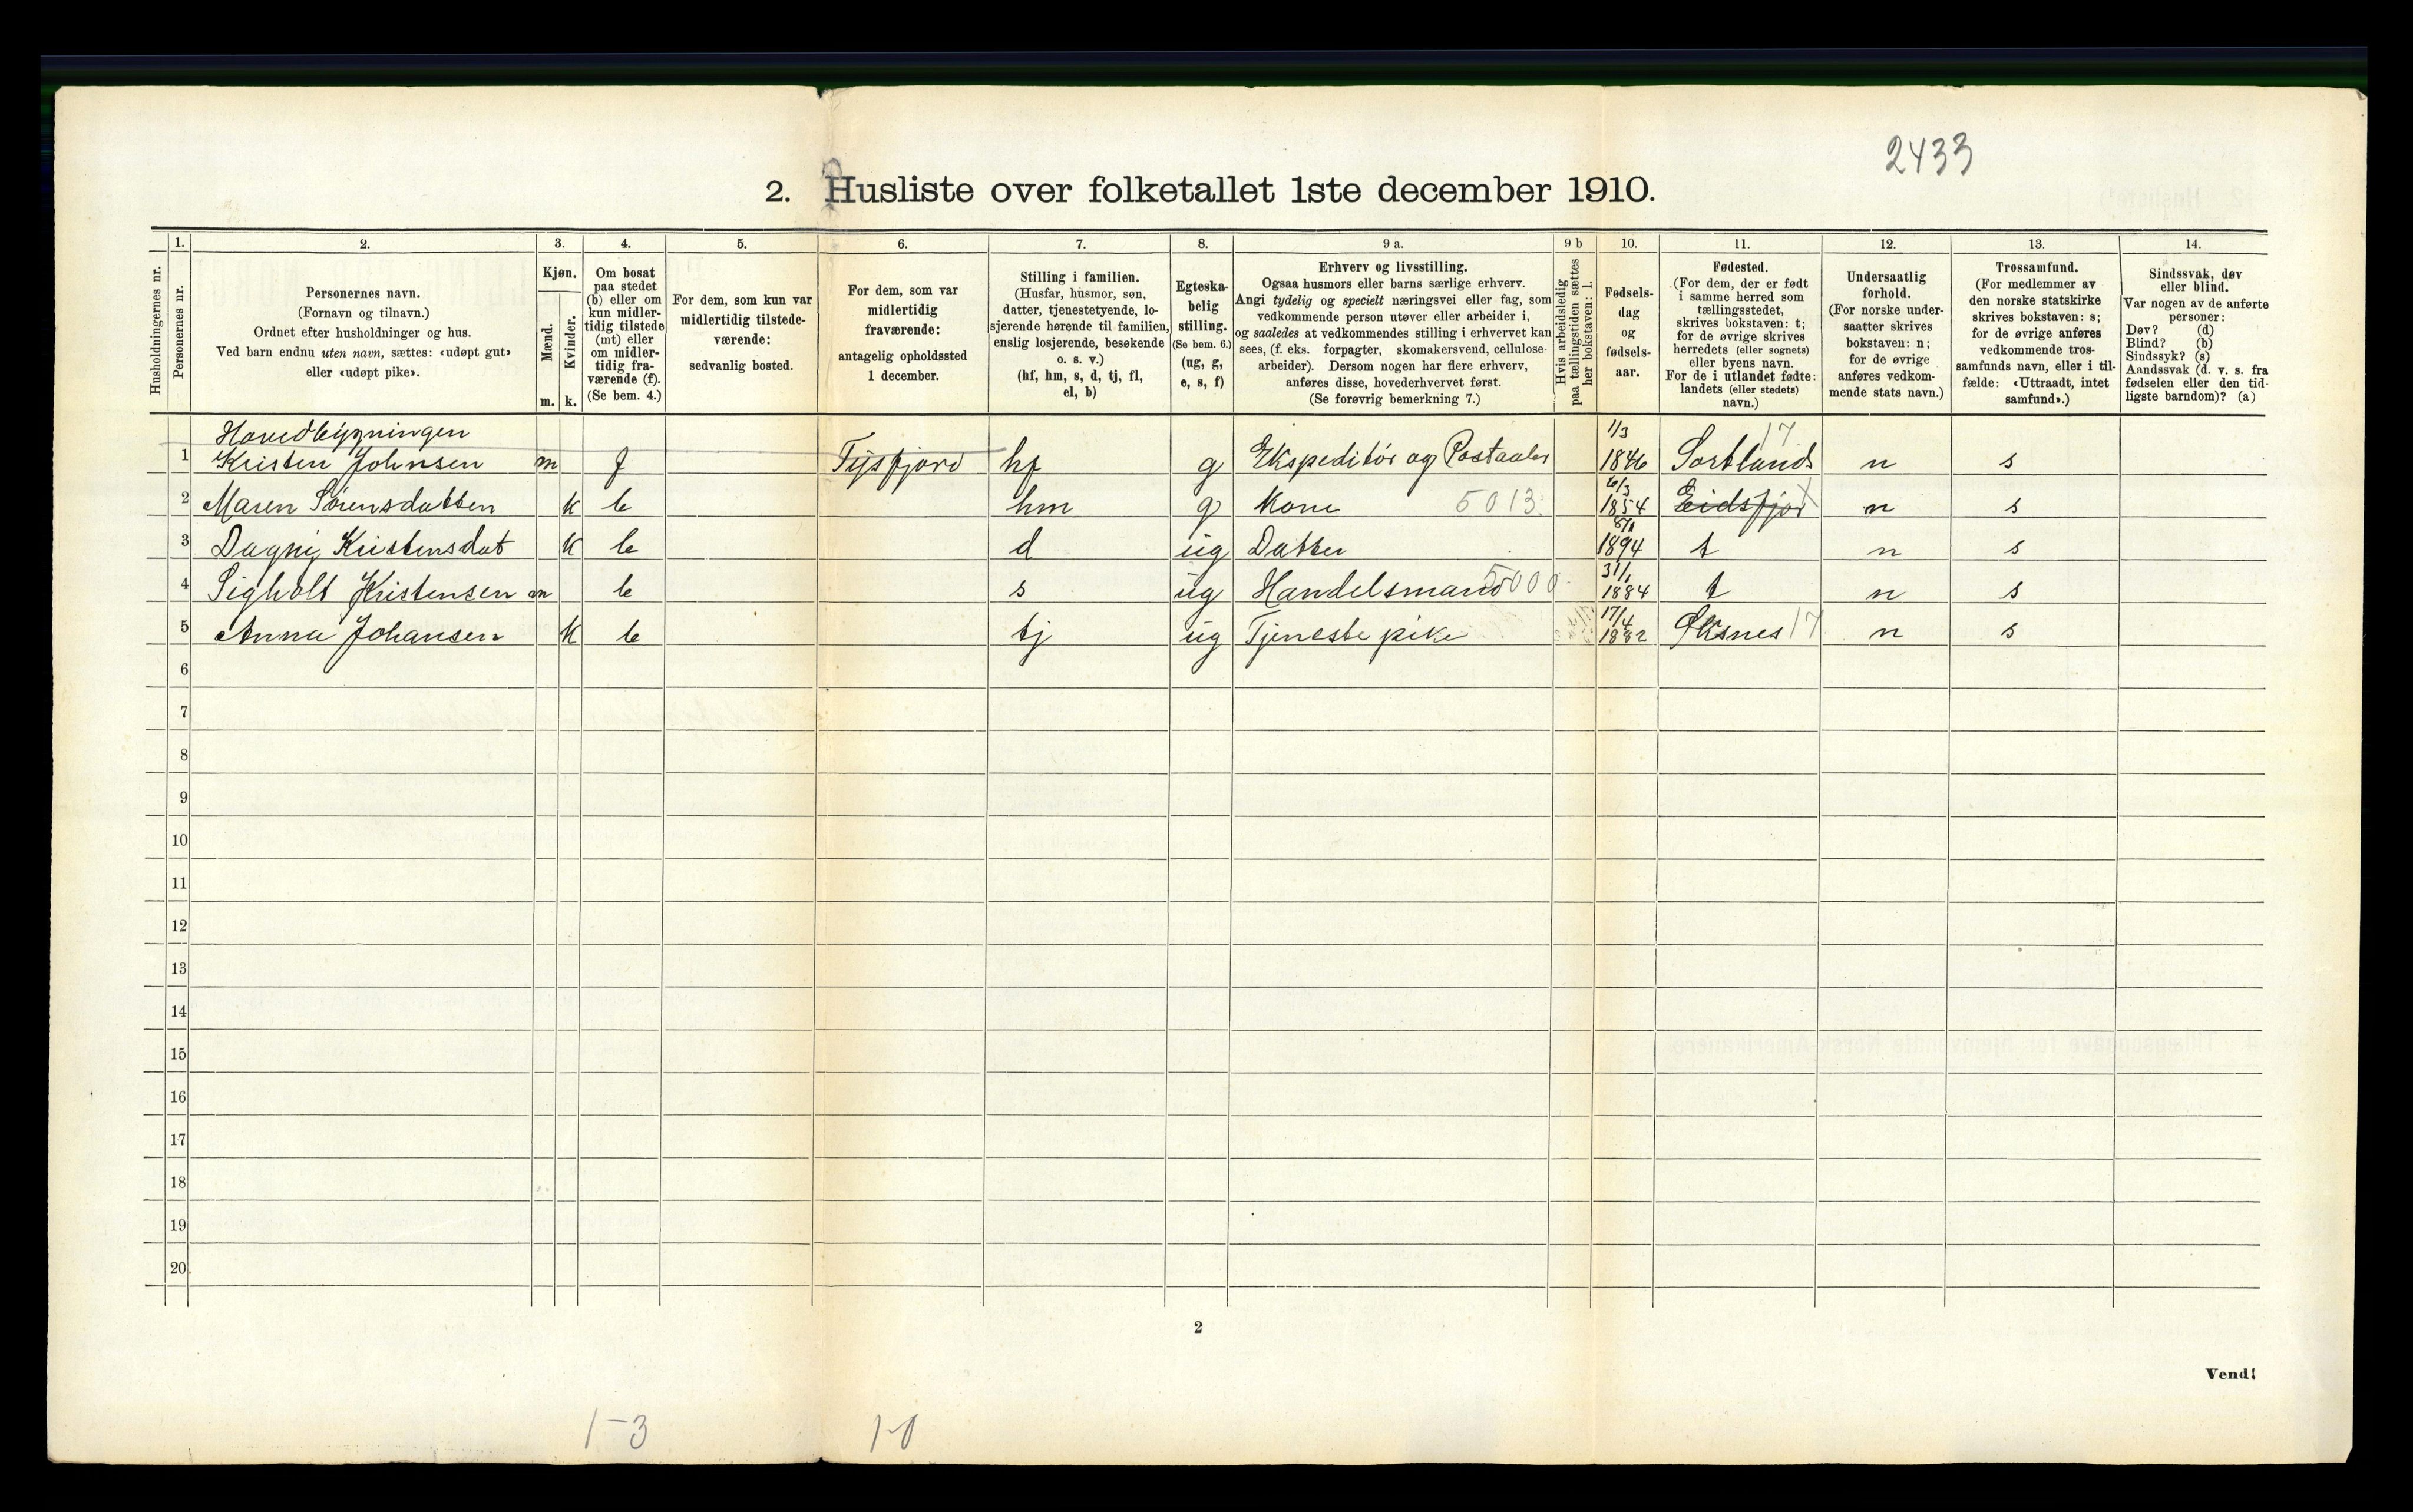 2433
2. Husliste over folketallet 1ste december 1910.
Husholdningernes nr.
1.
Personernes nr.
2.
Personernes navn.
(Fornavn og tilnavn.)
Ordnet efter husholdninger og hus.
Ved barn endnu uten navn, sættes: «udøpt gut»
eller «udøpt pike».
3.
Kjøn.
Mænd.
Kvinder.
m. k.
4.
Om bosat
paa stedet
(b) eller om
kun midler-
tidig tilstede
(mt) eller
om midler-
tidig fra-
værende (f).
(Se bem. 4.)
5.
For dem, som kun var
midlertidig tilstede-
værende:
sedvanlig bosted.
6.
For dem, som var
midlertidig
fraværende:
antagelig opholdssted
1 december.
7.
Stilling i familien.
(Husfar, husmor, søn,
datter, tjenestetyende, lo-
sjerende hørende til familien,
enslig losjerende, besøkende
o. s. v.)
(hf, hm, s, d, tj, fl,
el, b)
8.
Egteska-
belig
stilling.
(Se bem. 6.)
(ug, g,
e, s, f)
9 a.
Erhverv og livsstilling.
Ogsaa husmors eller barns særlige erhverv.
Angi tydelig og specielt næringsvei eller fag, som
vedkommende person utøver eller arbeider i,
og saaledes at vedkommendes stilling i erhvervet kan
sees, (f. eks. forpagter, skomakersvend, cellulose-
arbeider). Dersom nogen har flere erhverv,
anføres disse, hovederhvervet først.
(Se forøvrig bemerkning 7.)
9 b
Hvis arbeidsledig
paa tællingstiden sættes
her bokstaven: l.
10.
Fødsels-
dag
og
fødsels-
aar.
11.
Fødested.
(For dem, der er født
i samme herred som
tællingsstedet,
skrives bokstaven: t;
for de øvrige skrives
herredets (eller sognets)
eller byens navn.
For de i utlandet fødte:
landets (eller stedets)
navn.)
12.
Undersaatlig
forhold.
(For norske under-
saatter skrives
bokstaven: n;
for de øvrige
anføres vedkom-
mende stats navn.)
13.
Trossamfund.
(For medlemmer av
den norske statskirke
skrives bokstaven: s;
for de øvrige anføres
vedkommende tros-
samfunds navn, eller i til-
fælde: «Uttraadt, intet
samfund».)
14.
Sindssvak, døv
eller blind.
Var nogen av de anførte
personer:
Døv? (d)
Blind? (b)
Sindssyk? (s)
Aandssvak (d. v. s. fra
fødselen eller den tid-
ligste barndom)? (a)
Hovedbygningen
1 Kristen Johnsen m f Tysfjord hf g Ekspeditør og Postaaber 1/3 1846 Sortlands 17 n s
2 Maren Sørensdatten k b hm g Kone 5013. 6/3 1854 Eidsfjor n s
3 Dagny Kristensdat k b d ug Datter 1894 t n s
4 Sigholt Kristensen m b s ug Handelsmand 5000 31/1 1884 t n s
5 Anna Johansen k b tj ug Tjenestepike 17/4 1882 Øksnes 17 n s
6
7
8
9
10
11
12
13
14
15
16
17
18
19
20
2
Vend!
1-3 1-0